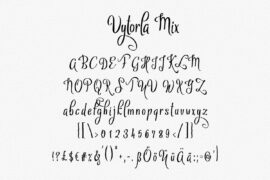 Vytorla Mix
ABCDEFGHIJKLM
NOPQRSTUVWXYZ
abcdefghijklmnopqrstuvwxyz
{[\>0123456789</]}